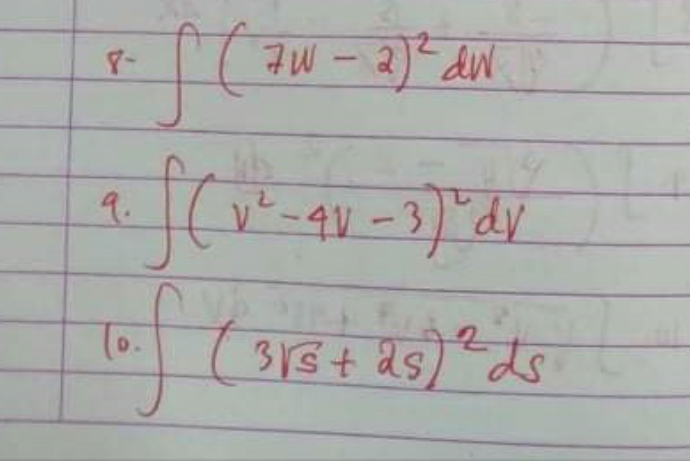 8- ∫ ( 7w - 2)² dw
9. ∫ ( v² - 4v - 3)² dv
10. ∫ ( 3√s + 2s)² ds